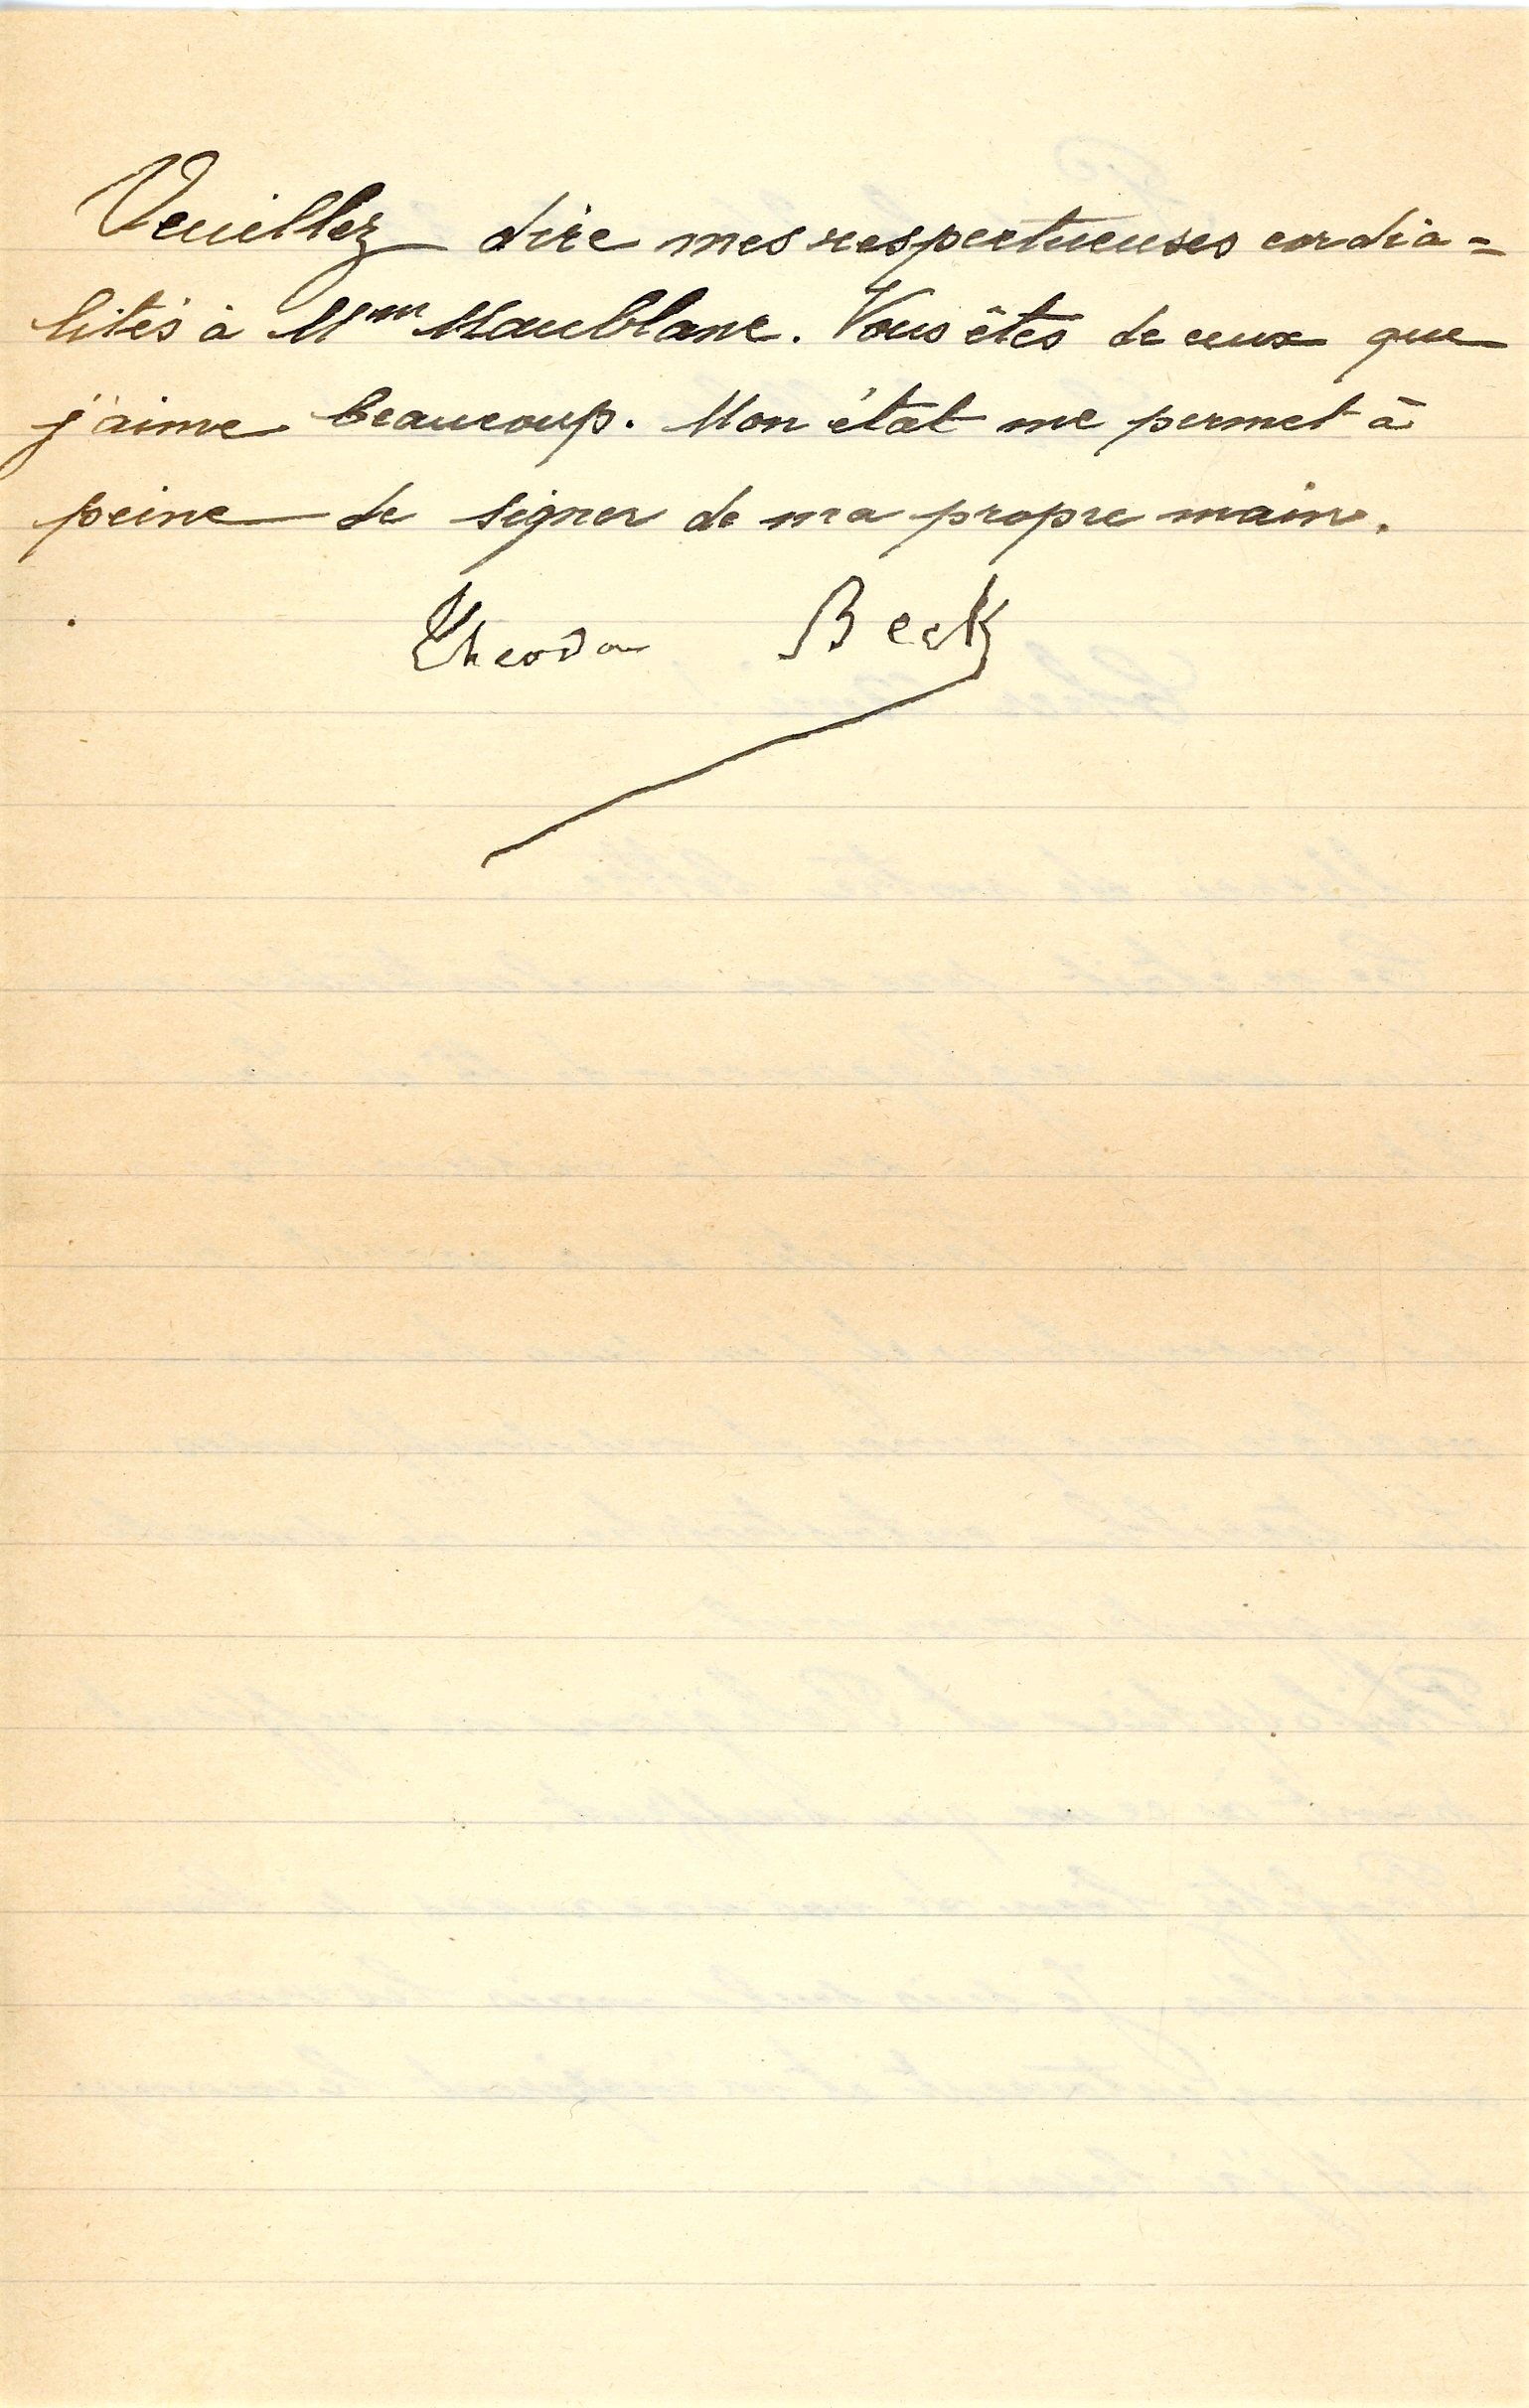 Veuillez dire mes respectueuses cordia-
lités à Mme Maublanc. Vous êtes de ceux que
j'aime beaucoup. Mon état me permet à
peine de signer de ma propre main.
Theodor Beck